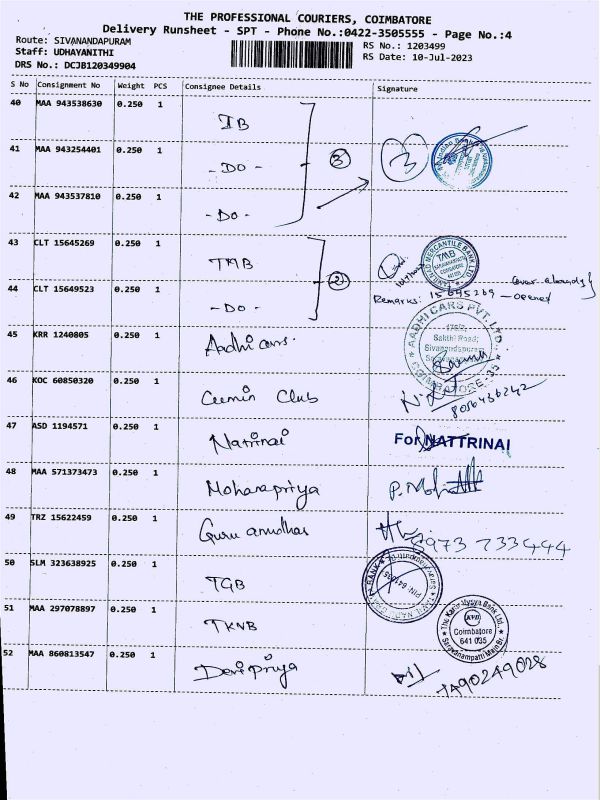 THE PROFESSIONAL COURIERS, COIMBATORE
Delivery Runsheet - SPT - Phone No.:0422-3505555 - Page No.:4
Route: SIVANANDAPURAM
RS No.: 1203499
Staff: UDHAYANITHI
RS Date: 10-Jul-2023
DRS No.: DCJB120349904
S No Consignment No Weight PCS Consignee Details Signature
40 MAA 943538630 0.250 1 IB
41 MAA 943254401 0.250 1 - DO - 3 3
42 MAA 943537810 0.250 1 - DO -
43 CLT 15645269 0.250 1 TMB
TAMILNAD MERCANTILE BANK LTD.
TMB
COIMBATORE
2
44 CLT 15649523 0.250 1 - DO -
Remarks: 15645269 - opened
Cover already
45 KRR 1240805 0.250 1 Aadhi cars.
AADHI CARS PVT. LTD.
Sakthi Road,
Sivanandapuram
COIMBATORE-35
46 KOC 60850320 0.250 1 Cumin Club
8056436242
47 ASD 1194571 0.250 1 Natrinai For NATTRINAI
48 MAA 571373473 0.250 1 Mohanapriya P. Moh
49 TRZ 15622459 0.250 1 Guru anudhas
8973 733444
50 SLM 323638925 0.250 1 TGB
BANK
PIN-641035
51 MAA 297078897 0.250 1 TKNB
The Karur Vysya Bank Ltd.
KVB
Coimbatore
641 035
Saravanampatti Main Br.
52 MAA 860813547 0.250 1 Devi priya
7490249028